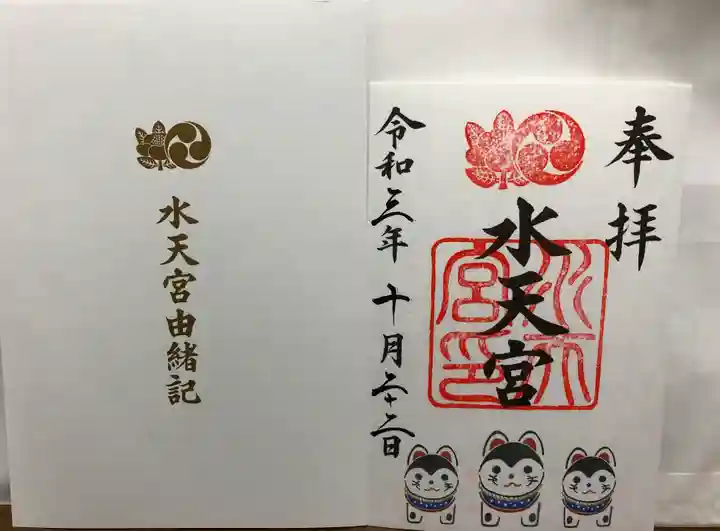 奉拝
水天宮
水天宮印
令和三年 十月二十二日
水天宮由緒記